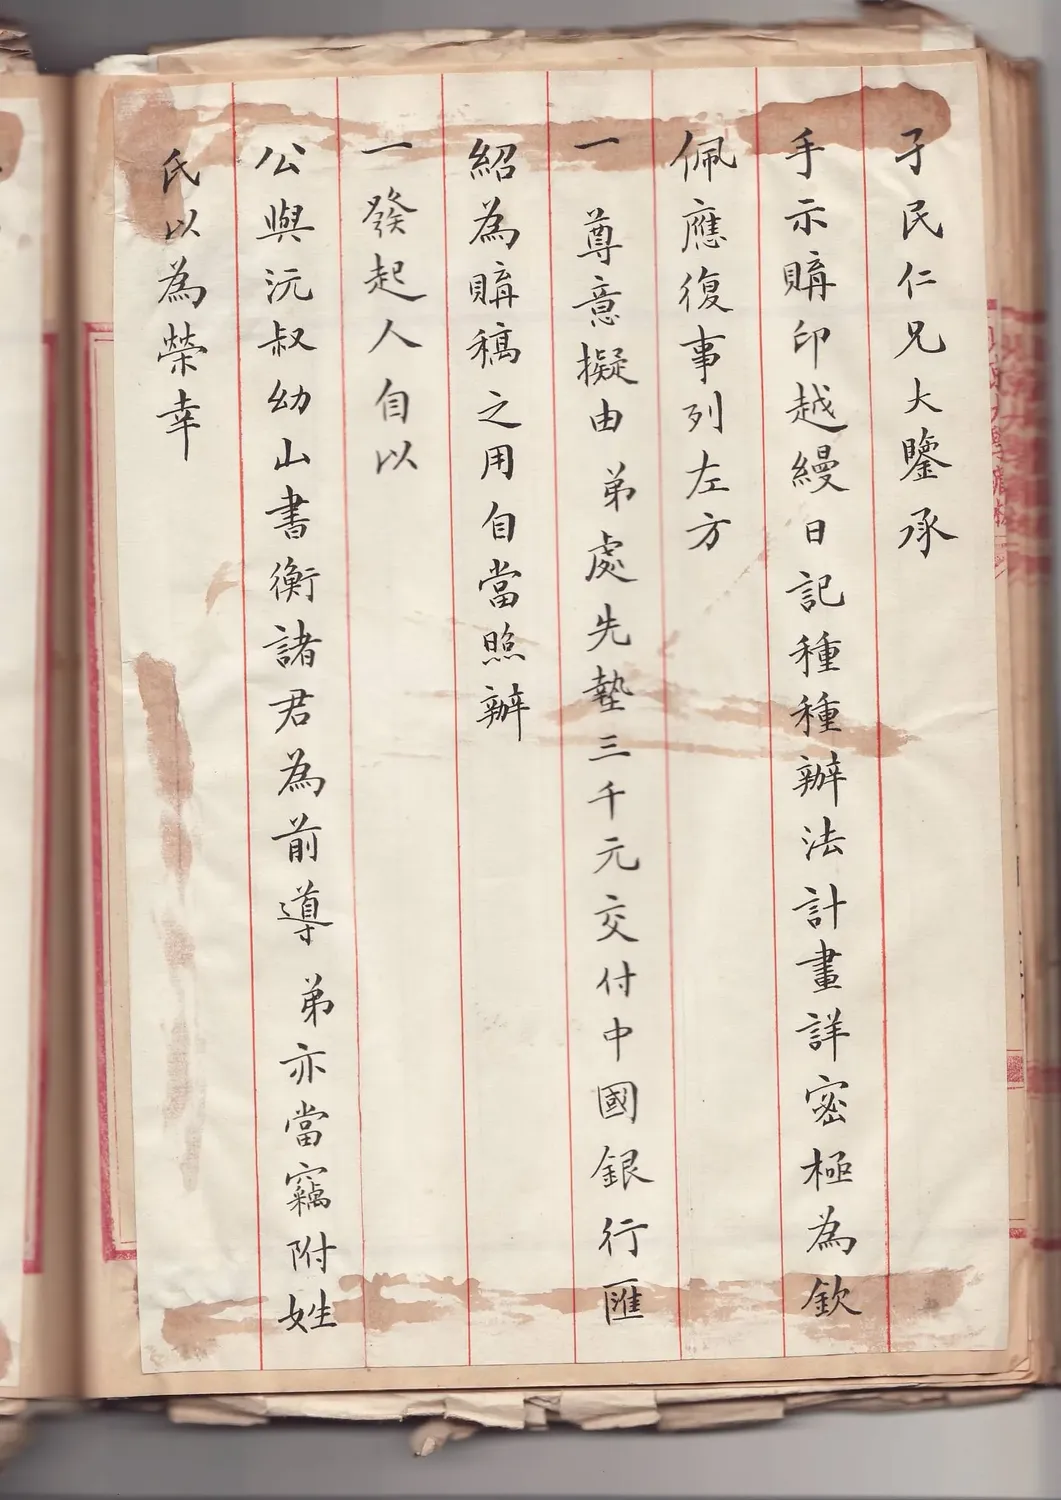 孑民仁兄大鑒承
手示購印越縵日記種種辦法計畫詳密極為欽
佩應復事列左方
一 尊意擬由 弟處先墊三千元交付中國銀行匯
紹為購稿之用自當照辦
一發起人自以
公與沅叔幼山書衡諸君為前導 弟亦當竊附姓
氏以為榮幸